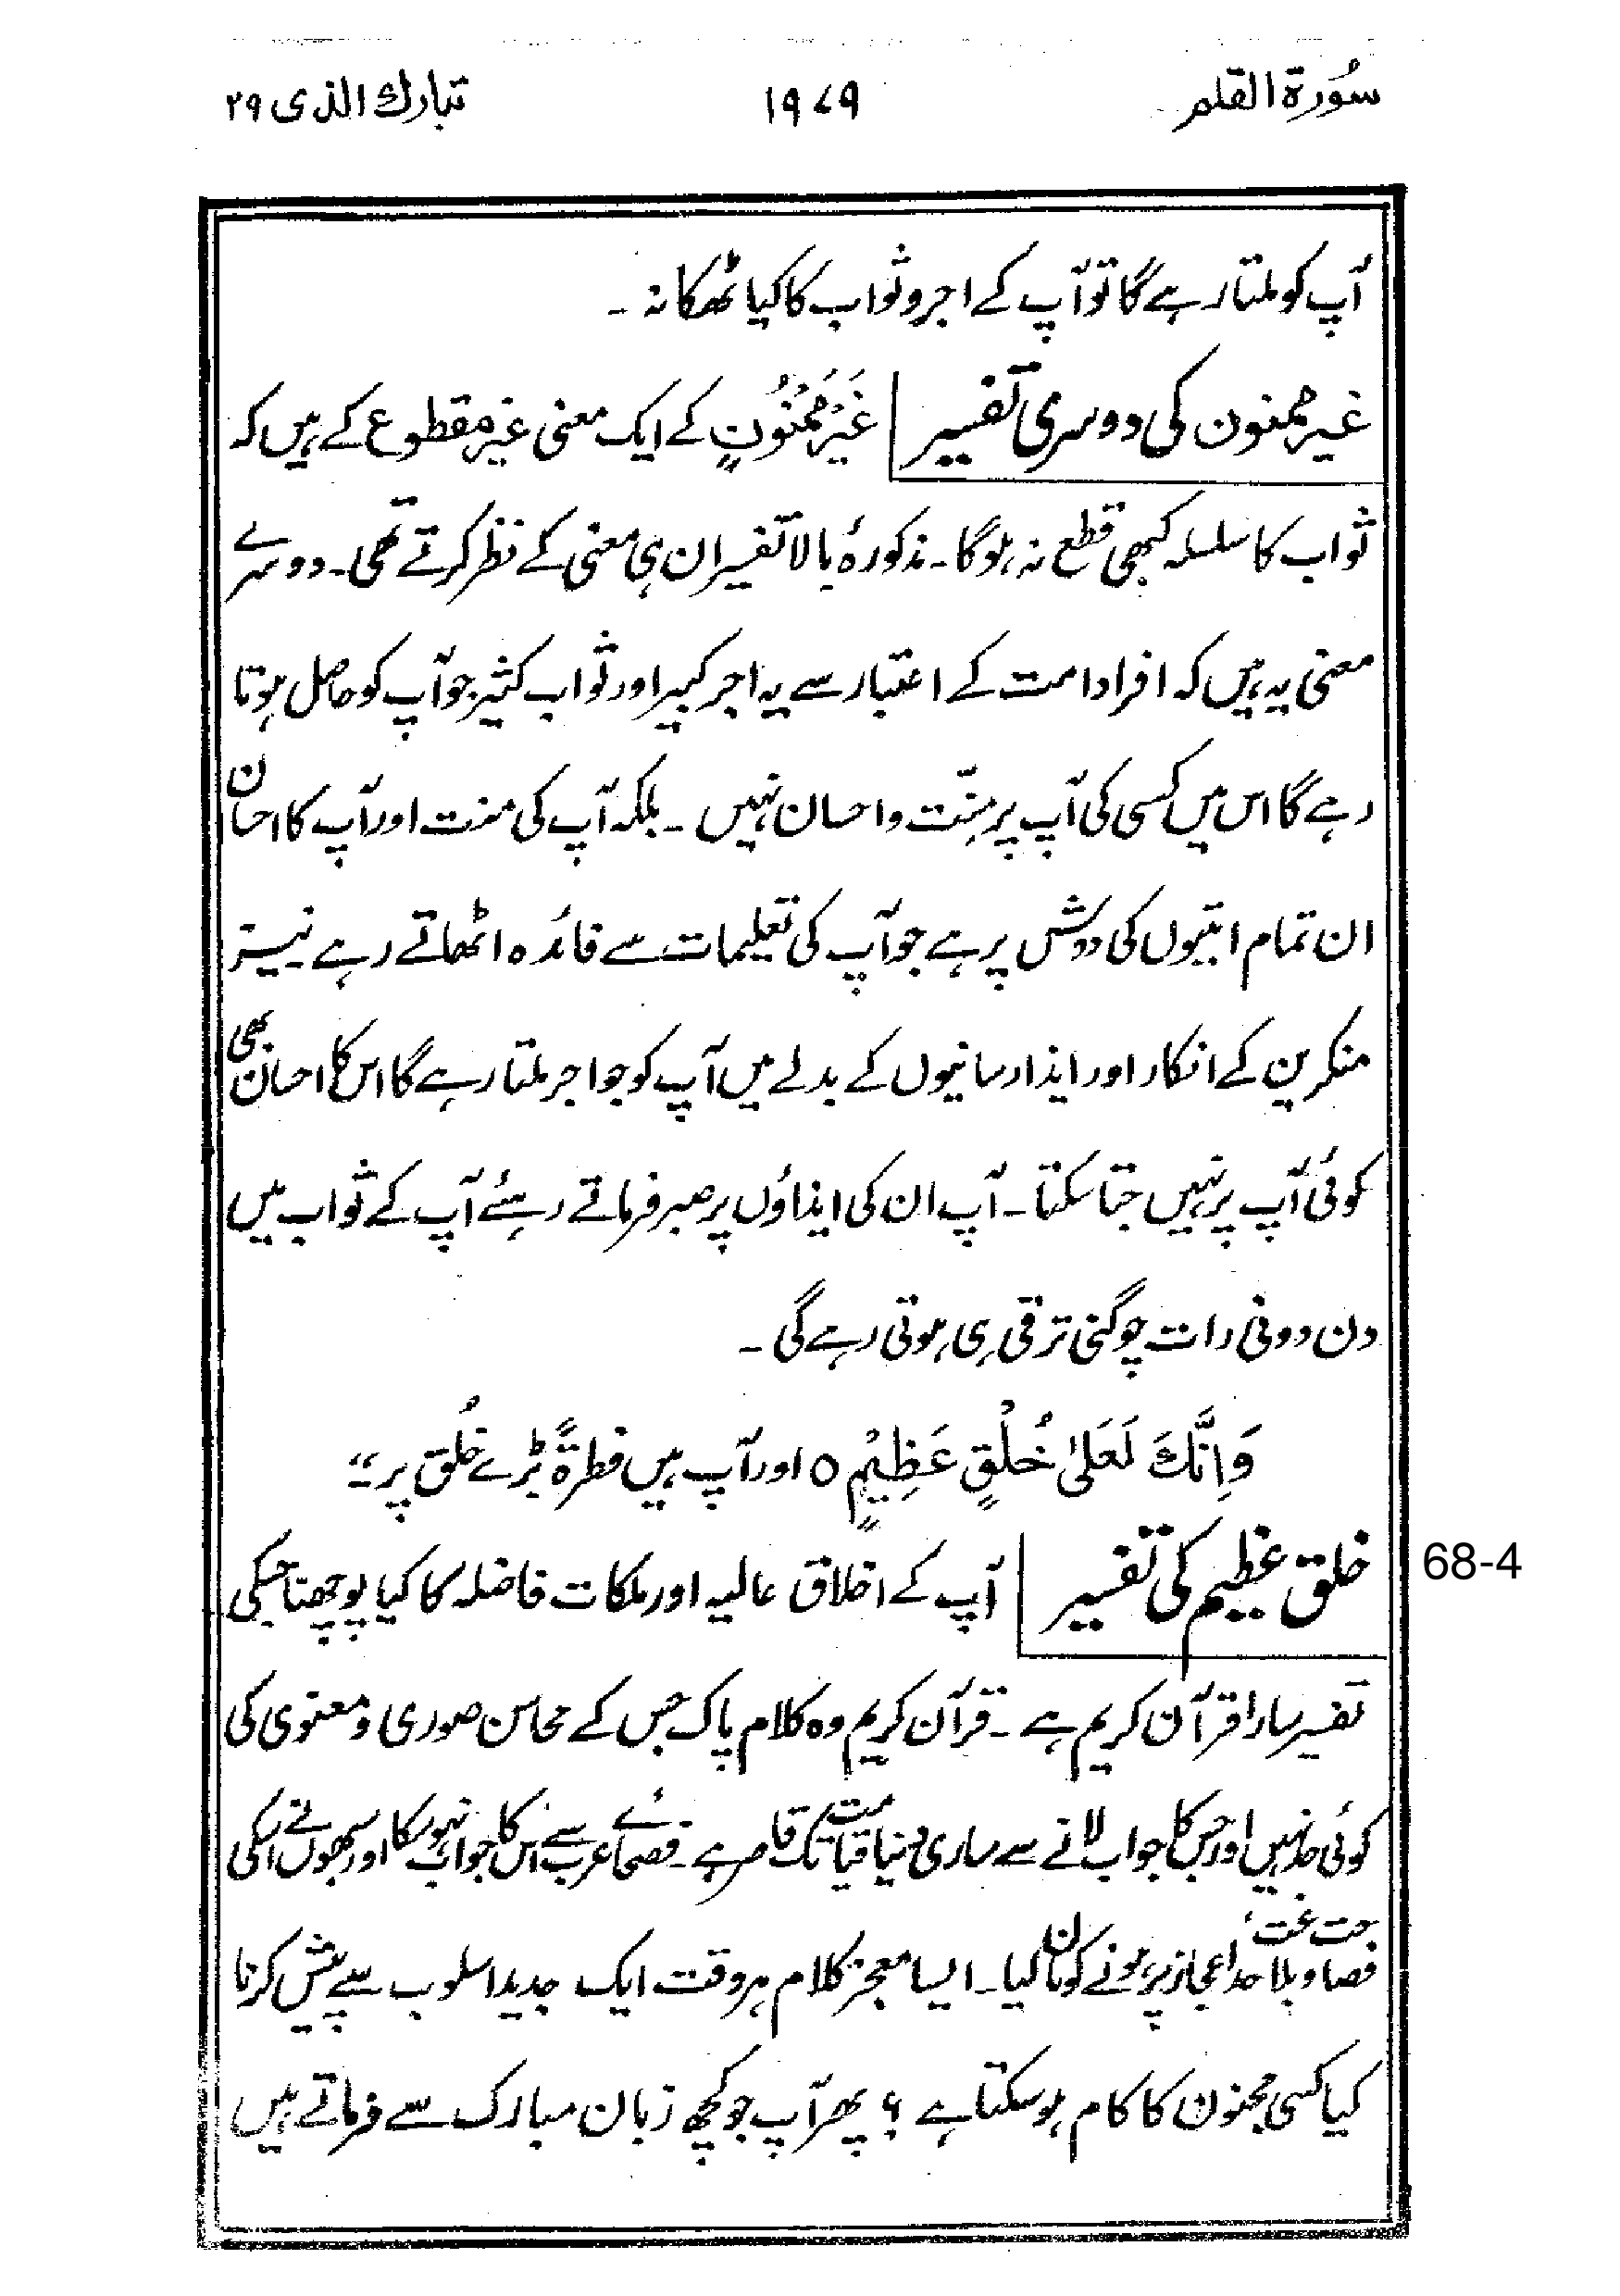 سُورة القلم ۱۹۷۹ تبارك الذی ۲۹
آپ کو ملتا رہے گا تو آپ کے اجر و ثواب کا کیا ٹھکانہ ۔
غیر ممنون کی دوسری تفسیر غَیْرَ مَمْنُوْنٍ کے ایک معنی غیر مقطوع کے ہیں کہ
ثواب کا سلسلہ کبھی قطع نہ ہوگا۔ مذکورۂ بالا تفسیر ان ہی معنی کے نظر کرتے تھی۔ دوسرے
معنی یہ ہیں کہ افراد امت کے اعتبار سے یہ اجر کبیر اور ثواب کثیر جو آپ کو حاصل ہوتا
رہے گا اس میں کسی کی آپ پر مِنّت و احسان نہیں ۔ بلکہ آپ کی منت اور آپ کا احسان
ان تمام امتیوں کی دوش پر ہے جو آپ کی تعلیمات سے فائدہ اٹھاتے رہے نیز
منکرین کے انکار اور ایذا رسانیوں کے بدلے میں آپ کو جو اجر ملتا رہے گا اس کا احسان بھی
کوئی آپ پر نہیں جتا سکتا۔ آپ ان کی ایذاؤں پر صبر فرماتے رہئے آپ کے ثواب میں
دن دونی رات چوگنی ترقی ہی ہوتی رہے گی ۔
وَاِنَّكَ لَعَلٰی خُلُقٍ عَظِیْمٍ ۝ اور آپ ہیں فطرۃً بڑے خُلق پر "
خلق عظیم کی تفسیر آپ کے اخلاق عالیہ اور ملکات فاضلہ کا کیا پوچھنا جسکی
68-4
تفسیر سارا قرآن کریم ہے ۔ قرآن کریم وہ کلام پاک جس کے محاسن صوری و معنوی کی
کوئی حد نہیں اور جس کا جواب لانے سے ساری دنیا قیامت تک قاصر ہے ۔ فصحائے عرب سے اس کا جواب نہو سکا اور سبھوں نے اسکی
فصاحت و بلاغت حد اعجاز پر ہونے کو مان لیا۔ ایسا معجز کلام ہر وقت ایک جدید اسلوب سے پیش کرنا
کیا کسی مجنون کا کام ہو سکتا ہے ؟ پھر آپ جو کچھ زبان مبارک سے فرماتے ہیں